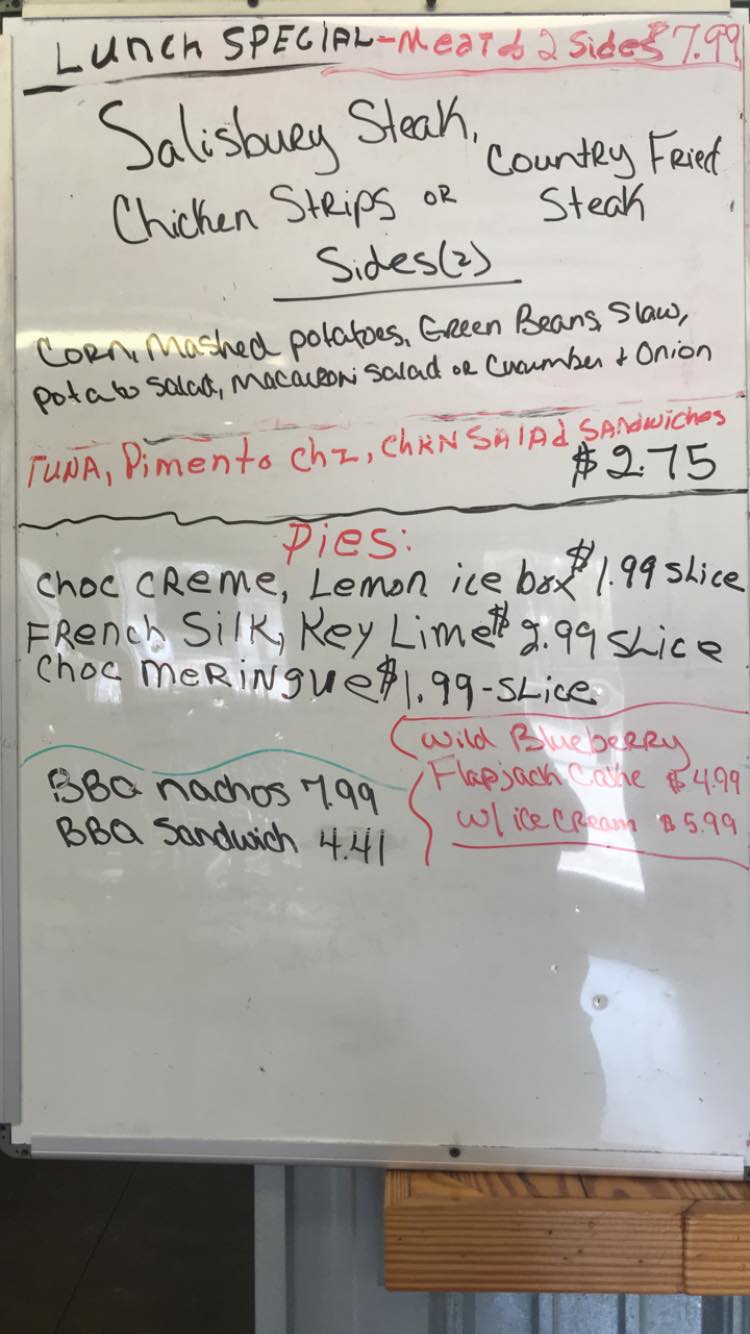 Lunch SPECIAL - Meat & 2 Sides $7.99
Salisbury Steak, Country Fried
Chicken Strips OR Steak
Sides(2)
Corn, Mashed potatoes, Green Beans, Slaw,
potato salad, Macaroni Salad or Cucumber + Onion
TUNA, Pimento chz, CHKN SALAd SANdwiches
$2.75
Pies:
choc CReme, Lemon ice box $1.99 slice
FRench Silk, Key Lime $2.99 slice
choc meringue $1.99-slice
Wild Blueberry
Flapjack Cake $4.99
w/ ice cream $5.99
BBQ nachos 7.99
BBQ Sandwich 4.41